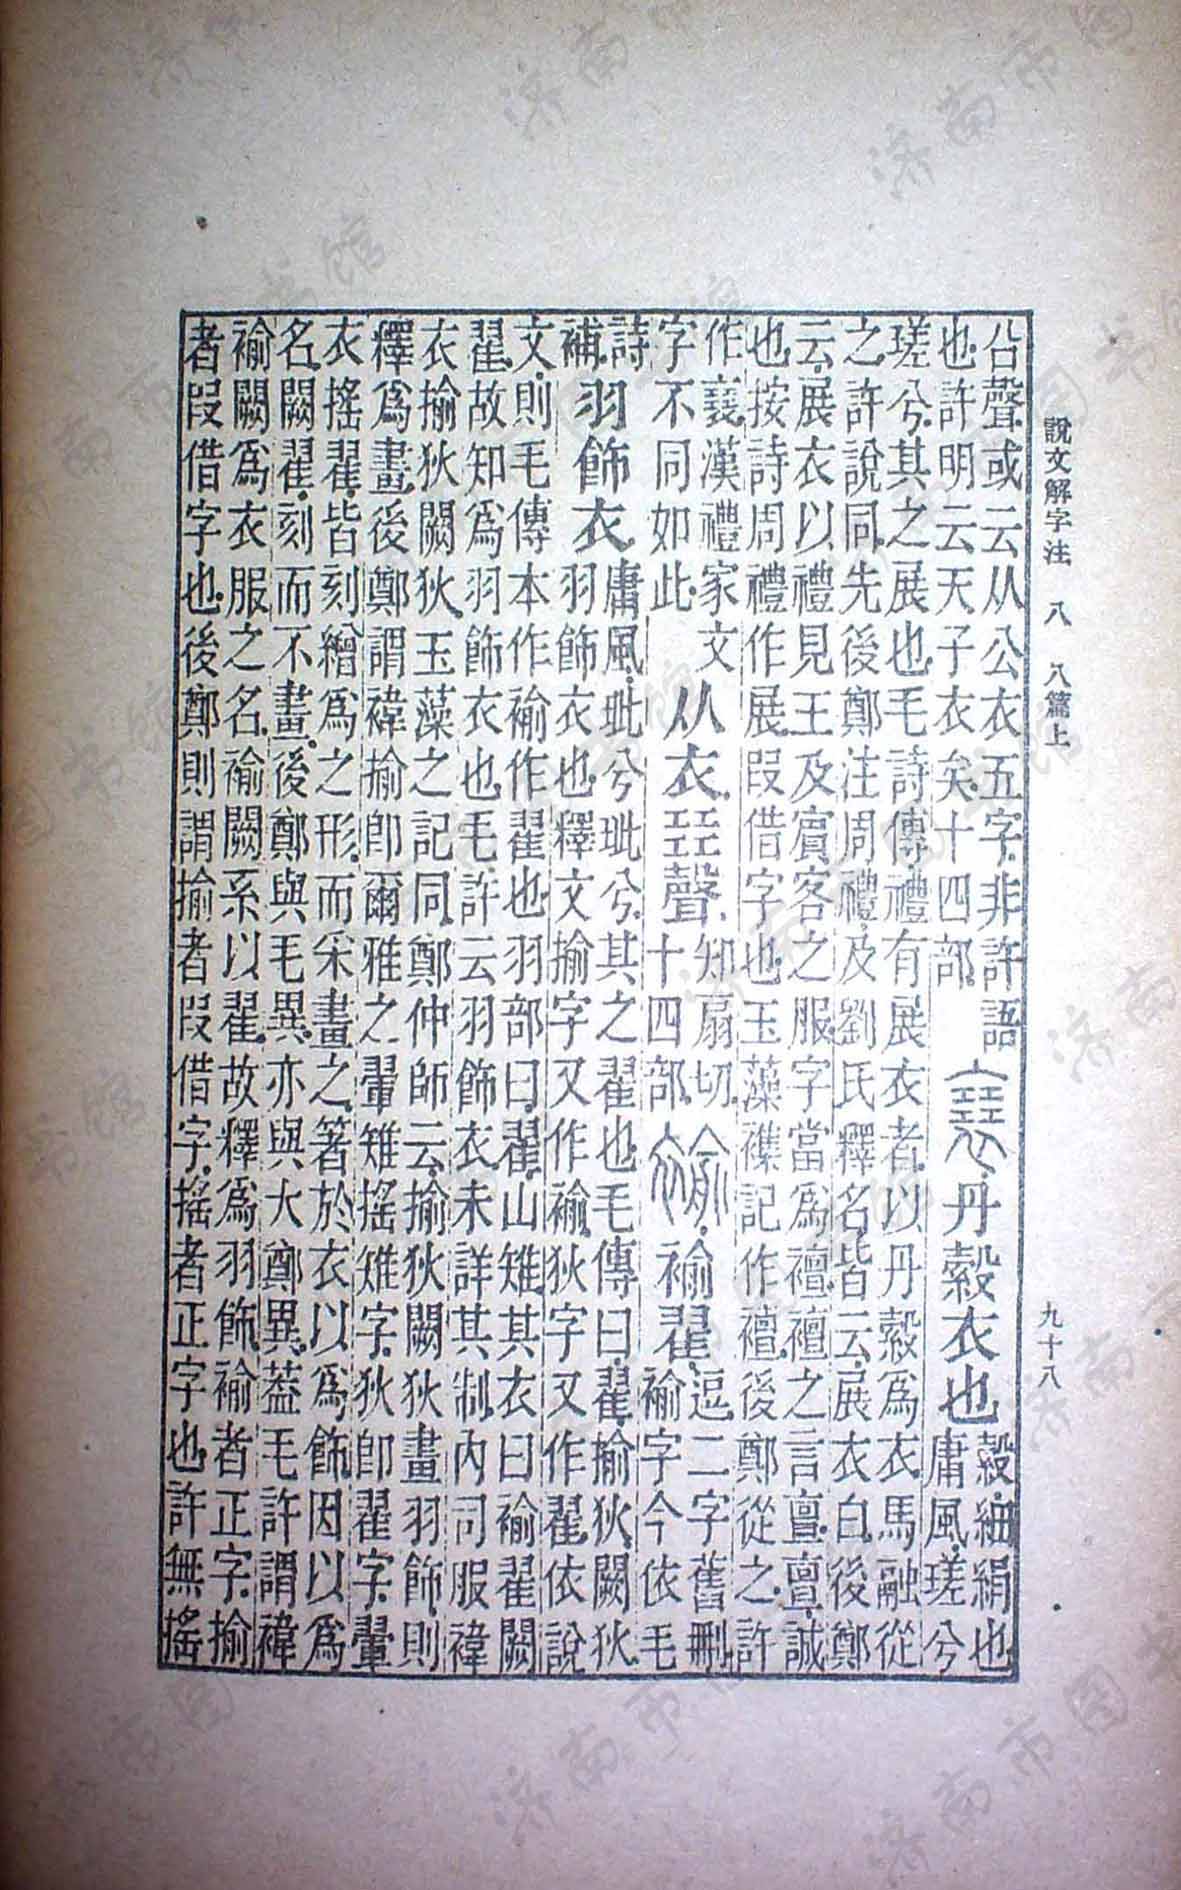 說文解字注 八 八篇上 九十八
㕣聲或云从公衣五字非許語
也許明云天子衣矣十四部
丹縠衣也
縠細絹也
庸風瑳兮
瑳兮其之展也毛詩傳禮有展衣者以丹縠爲衣馬融從
之許說同先後鄭注周禮及劉氏釋名皆云展衣白後鄭
云展衣以禮見王及賓客之服字當爲襢襢之言亶亶誠
也按詩周禮作展叚借字也玉藻襍記作襢後鄭從之許
作襄漢禮家文
字不同如此
从衣㠭聲
知扇切
十四部
褕 褕翟
逗二字舊刪
褕字今依毛
詩
補
羽飾衣
庸風玼兮玼兮其之翟也毛傳曰翟揄狄闕狄
羽飾衣也釋文揄字又作褕狄字又作翟依說
文則毛傳本作褕作翟也羽部曰翟山雉其衣曰褕翟闕
翟故知爲羽飾衣也毛許云羽飾衣未詳其制內司服褘
衣揄狄闕狄玉藻之記同鄭仲師云揄狄闕狄畫羽飾則
釋爲畫後鄭謂褘揄卽爾雅之翬雉搖雉字狄卽翟字翬
衣搖翟皆刻繒爲之形而采畫之箸於衣以爲飾因以爲
名闕翟刻而不畫後鄭與毛異亦與大鄭異葢毛許謂褘
褕闕爲衣服之名褕闕系以翟故釋爲羽飾褕者正字揄
者叚借字也後鄭則謂揄者叚借字搖者正字也許無搖
济南市图书馆